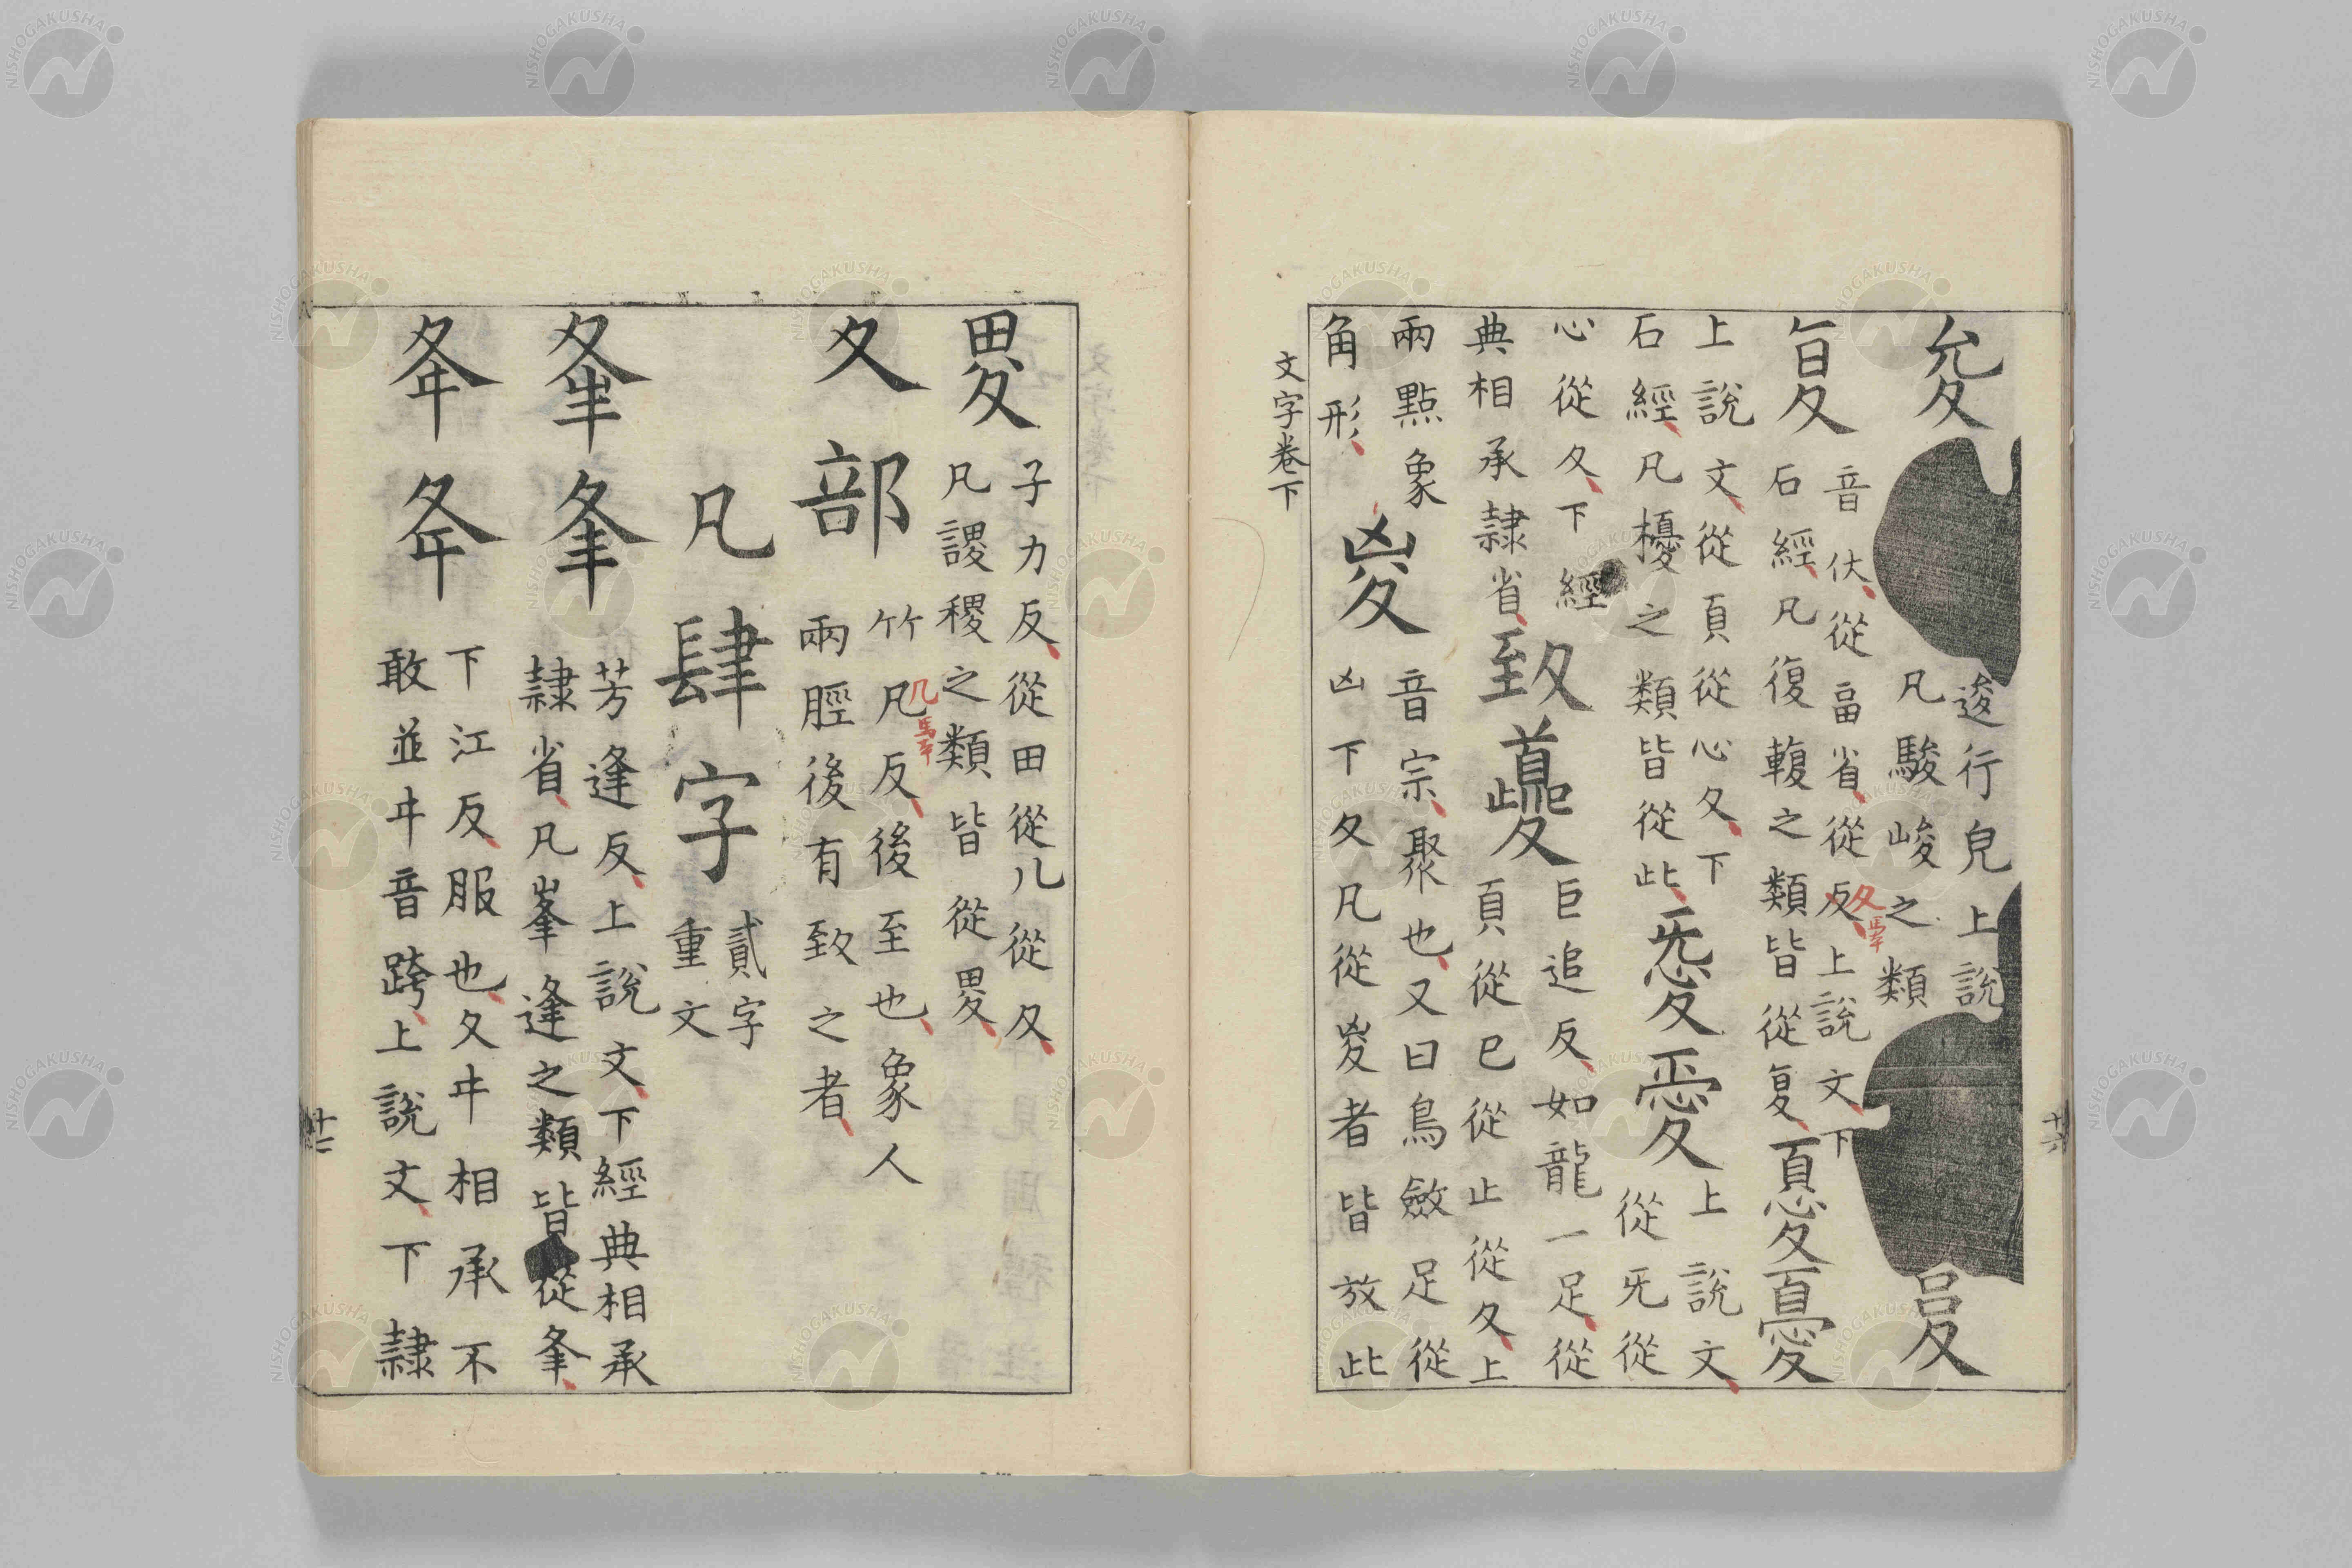 夋
逡行皃上說
凡駿峻之類
复
音伏從畐省從反上說文下
石經凡復輹之類皆從复
憂
上說文從頁從心夊下
石經凡櫌之類皆從此
愛
上說文從旡從
心從夊下經
典相承隸省
致
夔
巨追反如龍一足從
頁從巳從止從夊上
兩點象
角形
㚇
音宗聚也又曰鳥斂足從
凶下夊凡從㚇者皆放此
文字卷下
畟
子力反從田從儿從夊
凡謖稷之類皆從畟
夂部
竹凡反後至也象人
兩脛後有致之者
几
凡肆字
貳字
重文
夆
芳逢反上說文下經典相承
隸省凡峯逢之類皆從夆
夅
下江反服也夂㐄相承不
敢並㐄音跨上說文下隸
十二
NISHOGAKUSHA